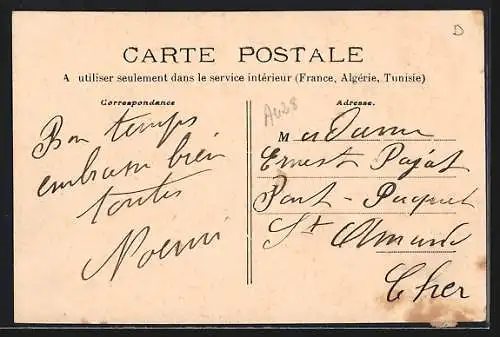 D
CARTE POSTALE
A utiliser seulement dans le service intérieur (France, Algérie, Tunisie)
Correspondance
Bon temps
embrasse bien
toutes
Noemi
A428
Adresse.
Madame
Ernest Pajat
Pont - Paquet
St Amand
Cher